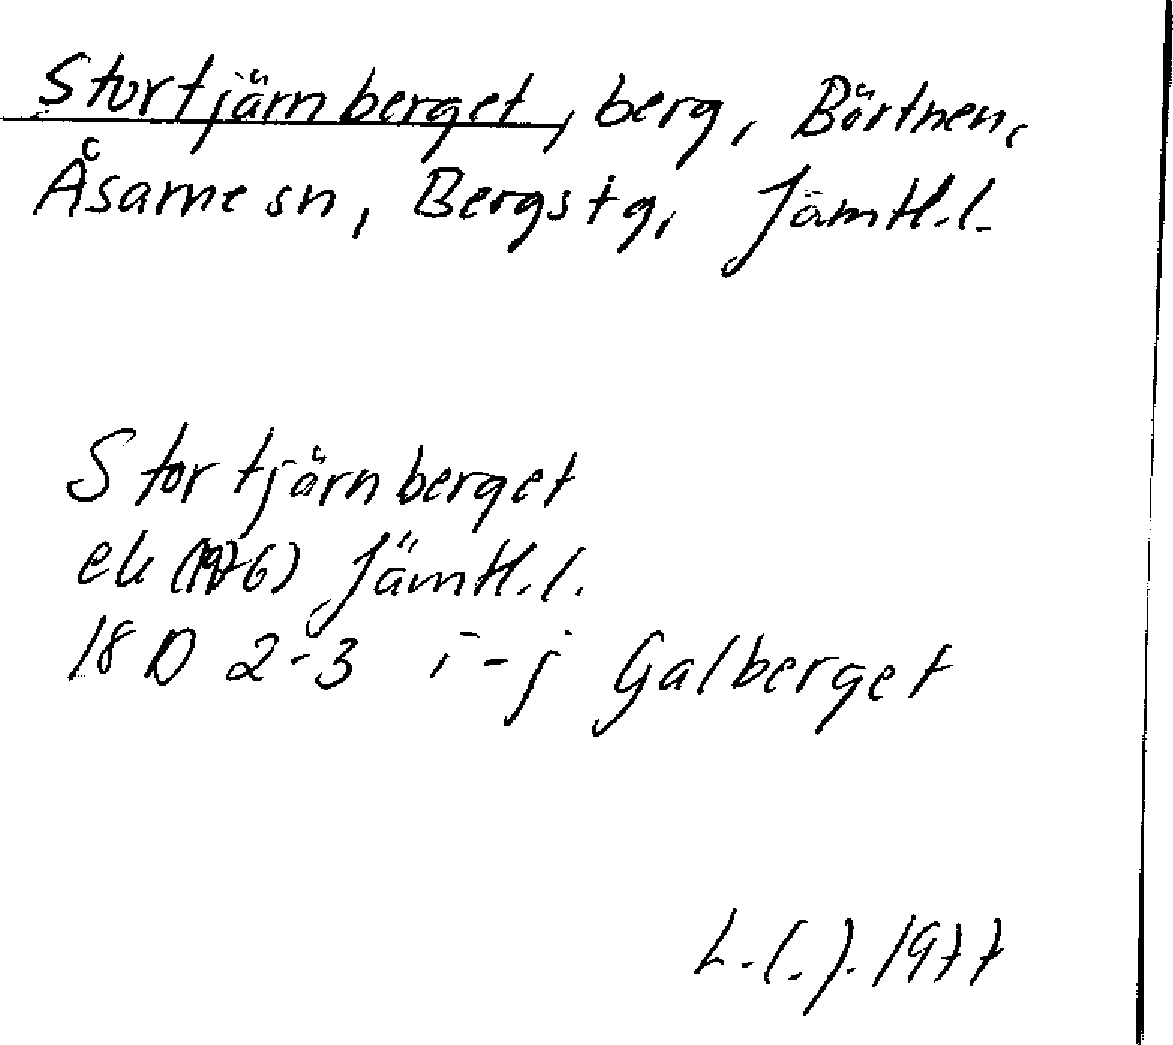 Stortjärnberget, berg, Börtnen,
Åsarne sn, Bergs tg, Jämtl.l.
Stortjärnberget
ek (1976) Jämtl.l.
18 D 2-3 i-j Galberget
1977